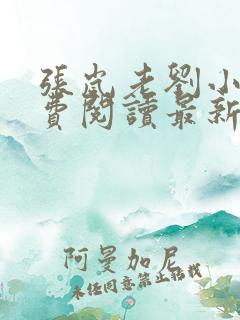 張嵐老劉小
費閱讀最新
阿曼加尼
未經同意禁止轉載